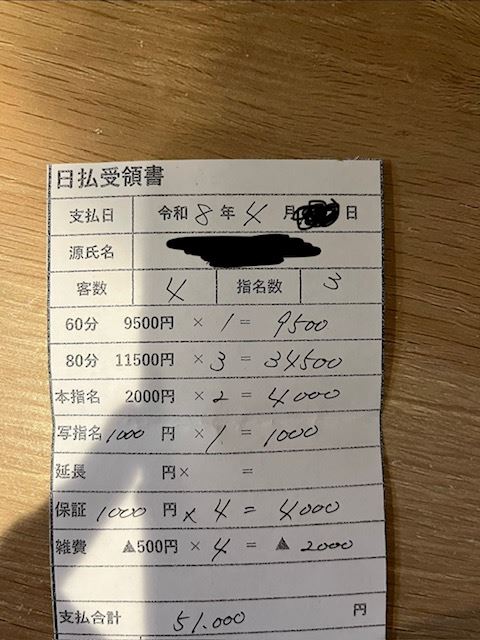 日払受領書
支払日 令和 8 年 4 月 日
源氏名
客数 4 指名数 3
60分 9500円 × 1 = 9500
80分 11500円 × 3 = 34500
本指名 2000円 × 2 = 4000
写指名 1000 円 × 1 = 1000
延長 円× =
保証 1000 円 × 4 = 4000
雑費 ▲500円 × 4 = ▲ 2000
支払合計 51.000 円